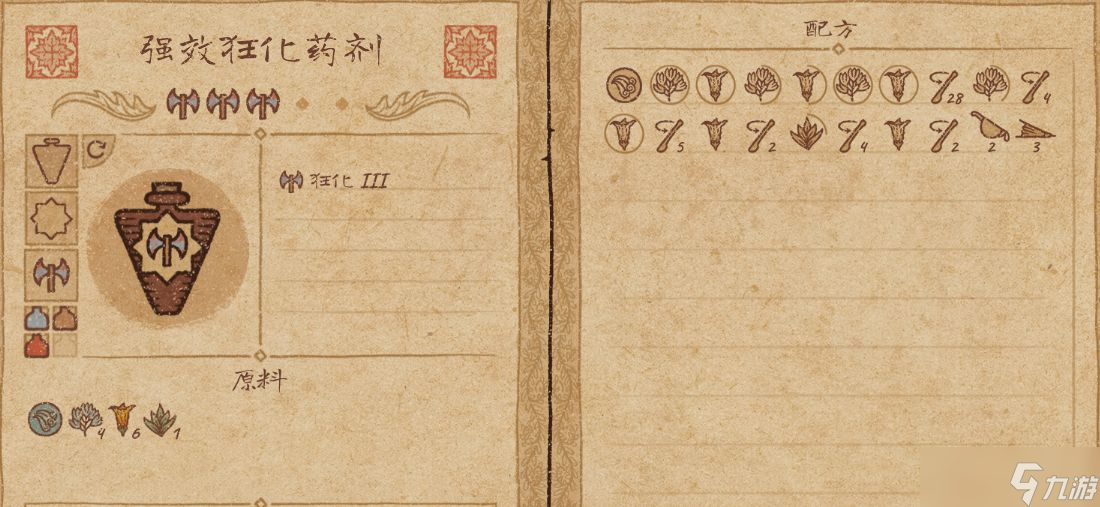 强效狂化药剂
狂化 III
原料
4 6 1
配方
28 4
5 2 4 2 2 3
九游